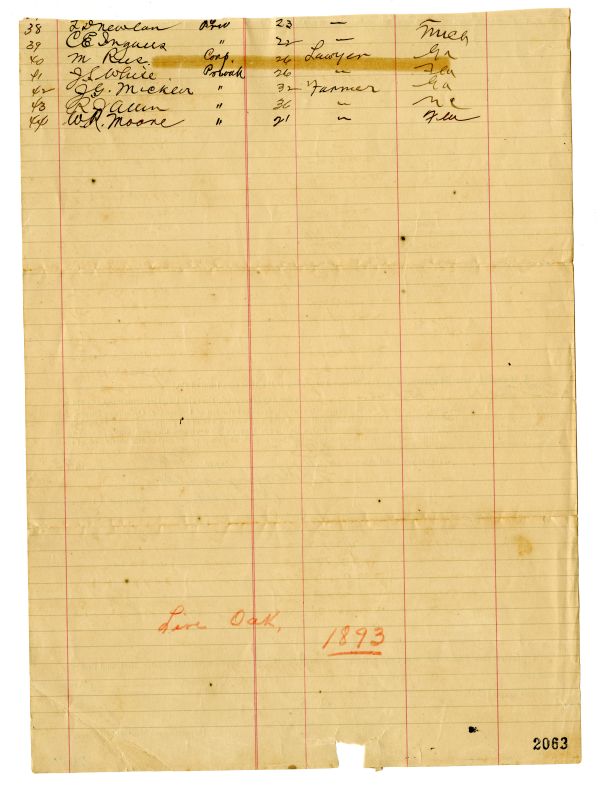 38 Newlan Priv 23 — Mich
39 C E Ingalls " 22 —
40 M Rus. Corp. 26 Lawyer Ga
41 J. L. White. Private 26 " Fla
42 J. G. Micken " 32 Farmer Ga
43 R J Allin " 36 " N C
44 W. R. Moore " 21 " Fla
Live Oak, 1893
2063